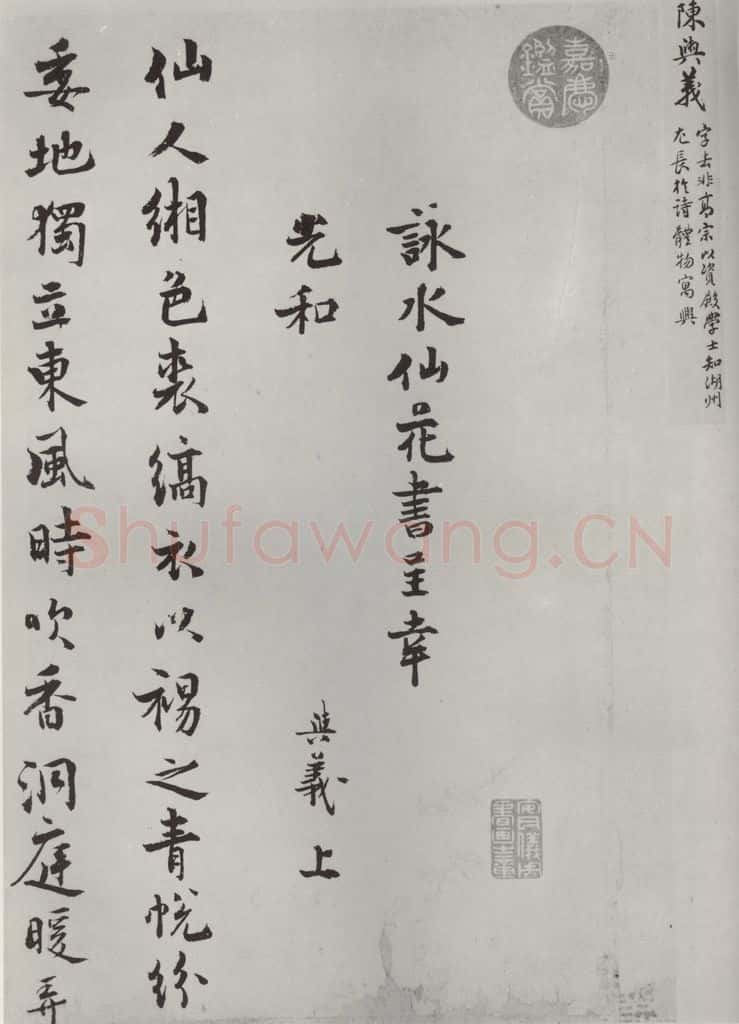 陳與義
字去非高宗以資殿學士知湖州
尤長於詩體物寓興
嘉慶鑑賞
詠水仙花書呈幸
光和
與義上
仙人緗色裘縞衣以裼之青帨紛
委地獨立東風時吹香洞庭暖弄
安氏儀周書畫之章
Shufawang.CN